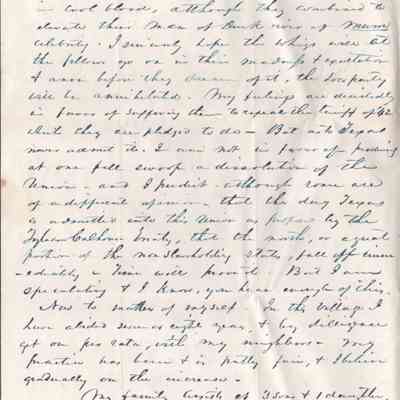 in cool blood, although they combined to
elevate their man of Duck river of mum
celebrity. I sincerely hope the whigs will let
the fellows go on in their madness & exultation
& anon before they dream of it, the Loco party
will be annihilated. My feelings are decidedly
in favor of suffering them to repeal the tariff of 42
which they are pledged to do. But as to Texas
never admit it. I am not in favor of producing
at one fell swoop a dissolution of the
Union. and I predict. although some are
of a different opinion. that the day Texas
is admitted into this Union as proposed by the
Tyler Calhoun that the north, or a great
portion of the nonslaveholding states, fall off imme
-diately. Time will prove it. But I am
speculating & I know, you have enough of this.
Now to matters of myself. In this village I
have abided seven or eight years, & by dilligence
get on pro rata, with my neighbors. My
practice has been & is pretty fair, & I believe
gradually on the increase.
My family consists of 3 sons & 1 daughter,